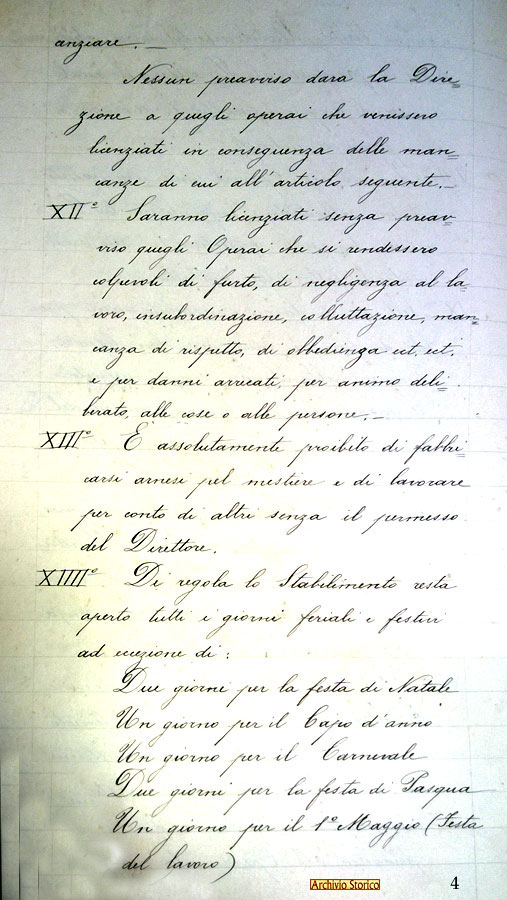 anziare. —
Nessun preavviso dara la Dire=
zione a quegli operai che venissero
licenziati in conseguenza delle man=
canze di cui all'articolo seguente. —
XII° Saranno licenziati senza preav=
viso quegli Operai che si rendessero
colpevoli di furto, di negligenza al la=
voro, insubordinazione, colluttazione, man=
canza di rispetto, di obbedienza ect. ect.
e per danni arrecati, per animo deli=
berato, alle cose o alle persone. —
XIII° È assolutamente proibito di fabbri=
carsi arnesi pel mestiere e di lavorare
per conto di altri senza il permesso
del Direttore.
XIIII° Di regola lo Stabilimento resta
aperto tutti i giorni feriali e festivi
ad eccezione di :
Due giorni per la festa di Natale
Un giorno per il Capo d'anno
Un giorno per il Carnevale
Due giorni per la festa di Pasqua
Un giorno per il 1° Maggio (Festa
del lavoro)
Archivio Storico 4